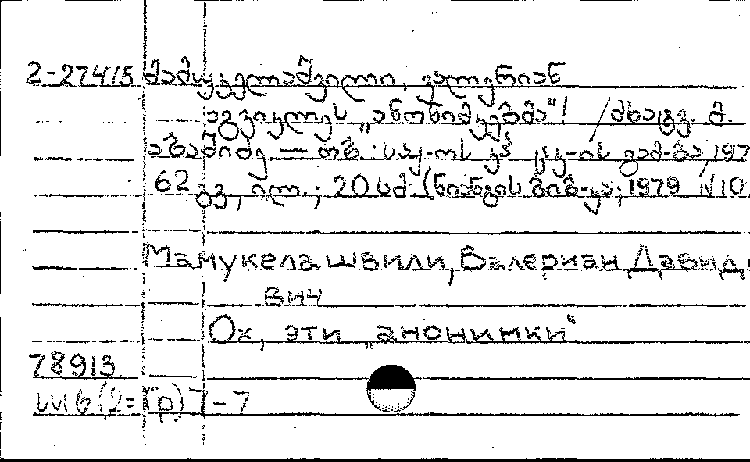 2-27415 მამუკელაშვილი, ვალერიან
აგვიკლეს „ანონიმკებმა“! / მხატვ. მ.
აბაშიძე. — თბ.: საქ. კპ ცკ-ის გამ-ბა, 197
62 გვ., ილ.; 20 სმ. (ნიანგის ბიბ-კა; 1979 №10
Мамукелашвили, Валериан Давид
вич
Ох, эти „анонимки“
78913
Ш6(2=Гр)7-7